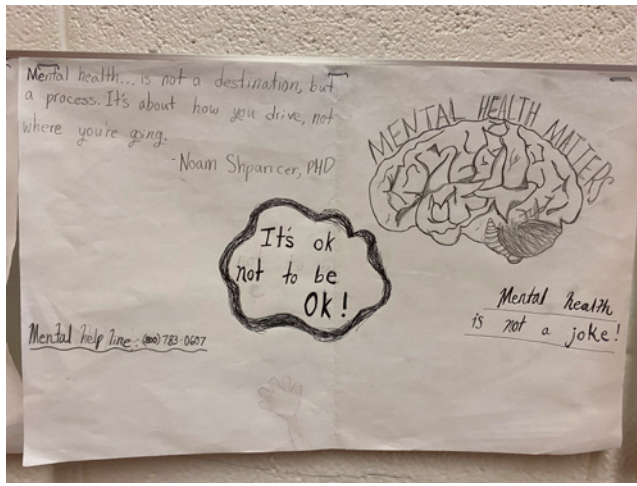 Mental health... is not a destination, but
a process. It's about how you drive, not
where you're going.
-Noam Shpancer, PHD
MENTAL HEALTH MATTERS
It's ok
not to be
OK!
Mental health
is not a joke!
Mental help line: (800) 783-0607